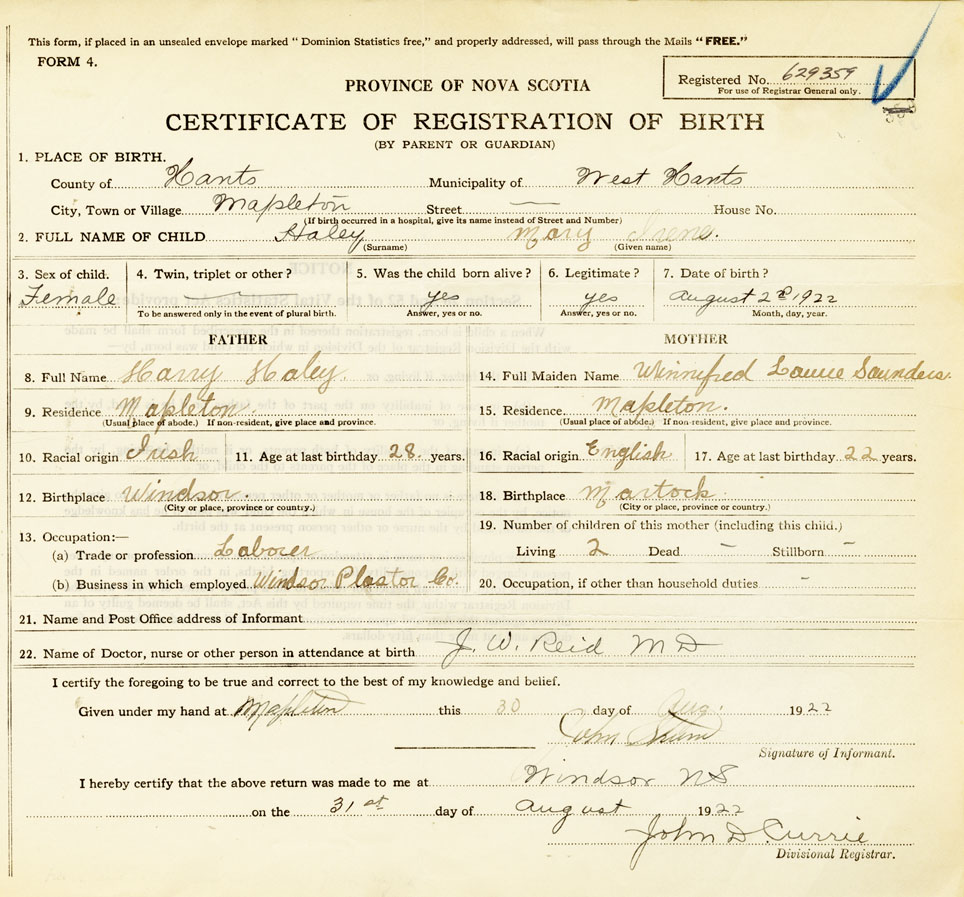 This form, if placed in an unsealed envelope marked “ Dominion Statistics free,” and properly addressed, will pass through the Mails “FREE.”
FORM 4.
Registered No. 629359
For use of Registrar General only.
PROVINCE OF NOVA SCOTIA
CERTIFICATE OF REGISTRATION OF BIRTH
(BY PARENT OR GUARDIAN)
1. PLACE OF BIRTH.
County of Hants Municipality of West Hants
City, Town or Village Mapleton Street — House No.
(If birth occurred in a hospital, give its name instead of Street and Number)
2. FULL NAME OF CHILD Haley Mary Irene.
(Surname) (Given name)
3. Sex of child. 4. Twin, triplet or other? 5. Was the child born alive? 6. Legitimate? 7. Date of birth?
Female — yes yes August 2d 1922
To be answered only in the event of plural birth. Answer, yes or no. Answer, yes or no. Month, day, year.
FATHER MOTHER
8. Full Name Harry Haley. 14. Full Maiden Name Winnifred Laurie Saunders.
9. Residence Mapleton. 15. Residence. Mapleton.
(Usual place of abode.) If non-resident, give place and province. (Usual place of abode.) If non-resident, give place and province.
10. Racial origin Irish 11. Age at last birthday 28 years. 16. Racial origin English 17. Age at last birthday 22 years.
12. Birthplace Windsor. 18. Birthplace Martock.
(City or place, province or country.) (City or place, province or country.)
19. Number of children of this mother (including this child.)
13. Occupation:—
(a) Trade or profession Laborer Living 2 Dead – Stillborn –
(b) Business in which employed Windsor Plastor Co. 20. Occupation, if other than household duties -
21. Name and Post Office address of Informant
22. Name of Doctor, nurse or other person in attendance at birth J. W. Reid M D
I certify the foregoing to be true and correct to the best of my knowledge and belief.
Given under my hand at Mapleton this 30 day of Aug. 1922
John
Signature of Informant.
I hereby certify that the above return was made to me at Windsor NS
on the 31st day of August 1922
John D Currie
Divisional Registrar.